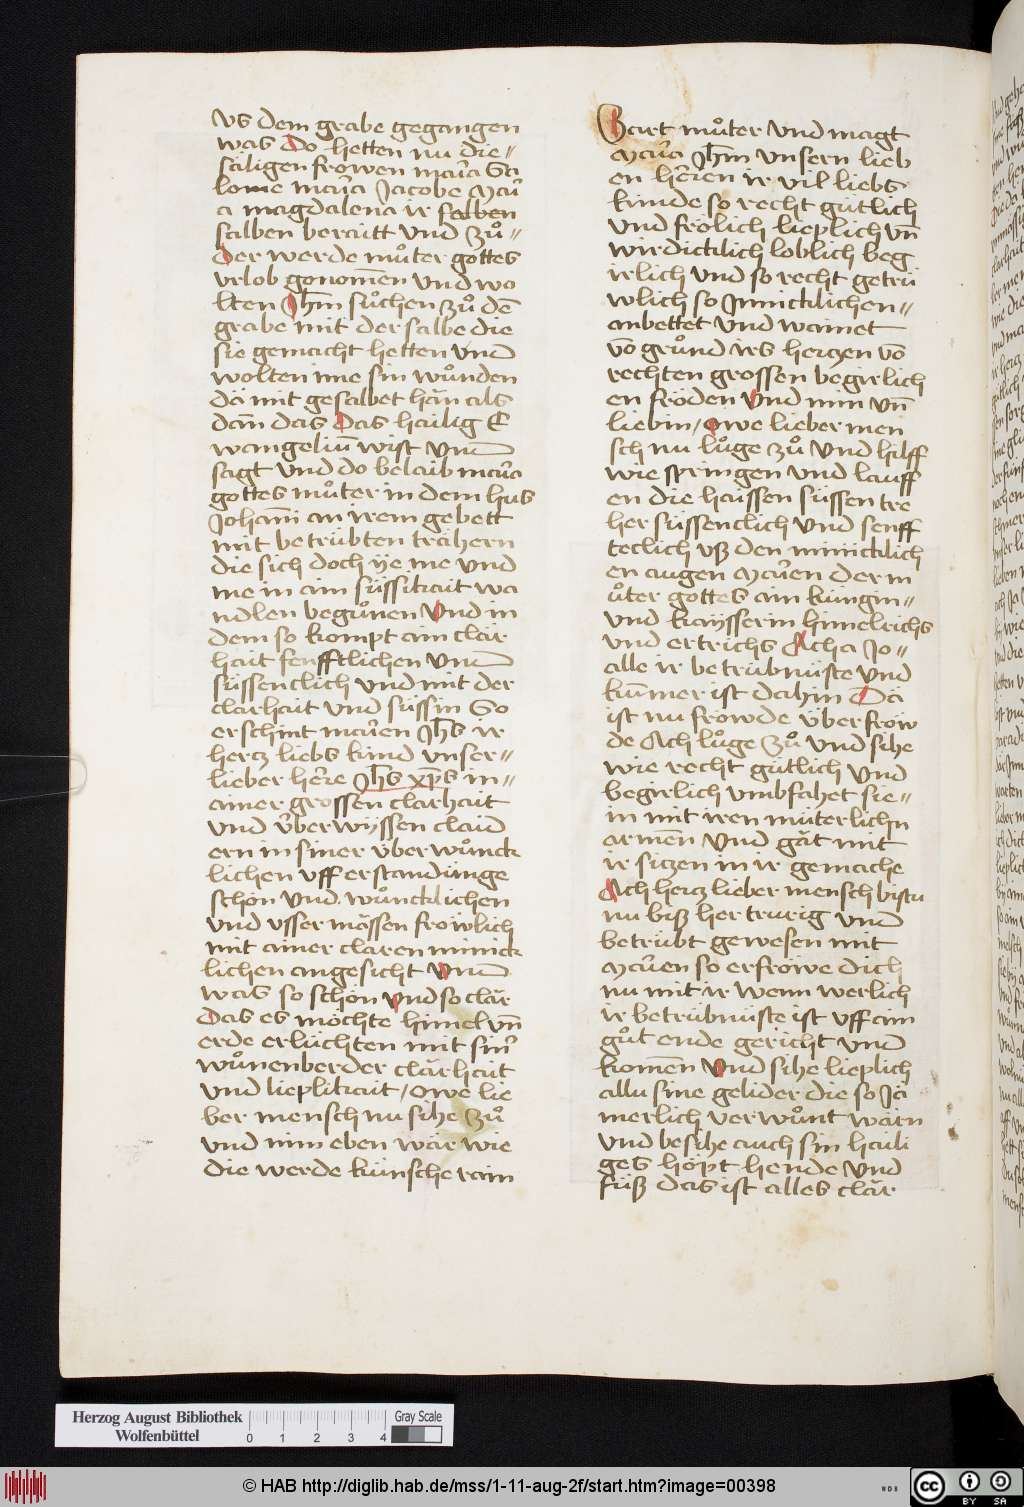 vs dem grabe gegangen
was do hetten nu die
säligen frowen maria Sa
lome maria Jacobe Mari
a magdalena ir selben
salben beraitt vnd zů
der werde můter gottes
vrlob gonomen vnd wo
lten Jhm sůchen zů dē
grabe mit der salbe die
sie gemacht hetten vnd
wolten ime sin wůnden
dä mit gesalbet hän als
dañ das das hailig E
wangeliū wist vnd
sagt vnd do belaib maria
gottes můter in dem hus
Johāni an irem gebett
mit betrübten trähern
die sich doch ÿe me vnd
me in ain süssikait wa
ndlen begůnen vnd in
dem so kompt ain clär
hait senfftlichen vnd
süssenclich vnd mit der
clarhait vnd süssin So
erschint marien Jhs ir
hercz liebs kind vnser
lieber here Jhs xp̄s in
ainer grossen clarhait
vnd überwÿssen claid
ern in siner überwůnck
lichen vff erstandünge
schön vnd wůncklichen
vnd vsser mässen fröwlich
mit ainer claren minick
lichen angesicht vnd
was so schön vnd so clär
Das es möchte himel vn̄
erde erlüchten mit sinr
wůnenberder clärhait
vnd lieplikait / owe lie
ber mensch nu sihe zů
vnd nim eben wär wie
die werde künsche rain
Zart můter vnd magt
Maria Jhm vnsern lieb
en heren ir vil liebs
kinde so recht gütlich
vnd frölich lieplich vn̄
wirdicklich loblich beg
irlich vnd so recht getrü
wlich so Jnnicklichen
anbettet vnd wainet
vō grůnd irs herczen vō
rechten grossen begirlich
en fröden vnd min vn̄
liebin / owe lieber men
sch nu lůge zů vnd hilff
wie springen vnd lauff
en die haissen süssen tre
her süssenclich vnd senff
teclich vß den minicklich
en augen Marien der m
ůter gottes ain küngin
vnd kaÿsserin himelrichs
vnd ertrichs Acha Jo
alle ir betrübnüste vnd
kumer ist dahin Dä
ist nu fröwde über fröw
de Ach lůge zů vnd sihe
wie recht gütlich vnd
begirlich vmbfahet sie
in mit iren müterlichn
armen vnd gät mit
ir siczen in ir gemache
Ach hercz lieber mensch bistu
nu biß her trurig vnd
betrübt gewesen mit
Marien so erfröwe dich
nu mit ir wenn werlich
ir betrübnüste ist vff ain
gůt ende gericht vnd
komen vnd sihe lieplich
allu sine gelider die so Jä
merlich verwůnt wärn
vnd besihe auch sin haili
ges höpt hende vnd
füß das ist alles clär
Herzog August Bibliothek
Wolfenbüttel
0 1 2 3 4
Gray Scale
© HAB http://diglib.hab.de/mss/1-11-aug-2f/start.htm?image=00398
WDB
cc BY SA